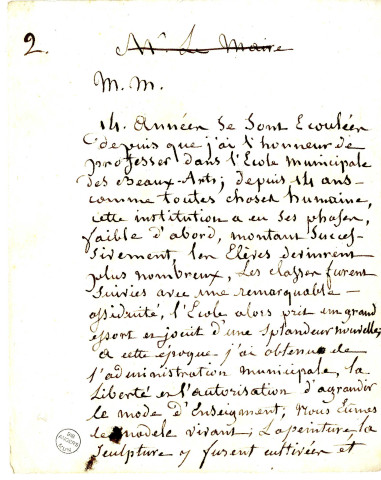 2.
Mr Le Maire
M. M.
14. Années se sont Ecoulées
depuis que j'ai l'honneur de
professer dans l'Ecole Municipale
des Beaux-Arts; depuis 14 ans
comme toutes choses humaine,
cette institution a eu ses phases,
faible d'abord, montant succes-
sivement, les Elèves devinrent
plus nombreux, Les classes furent
suivies avec une remarquable
assiduité, l'Ecole alors prit un grand
essort et jouit d'une splandeur nouvelle;
a cette époque j'ai obtenu de
l'administration municipale, la
Liberté et l'autorisation d'agrandir
le mode d'Enseigment, Nous Eumes
le modele vivant; La peinture la
sculpture y furent cultivées et